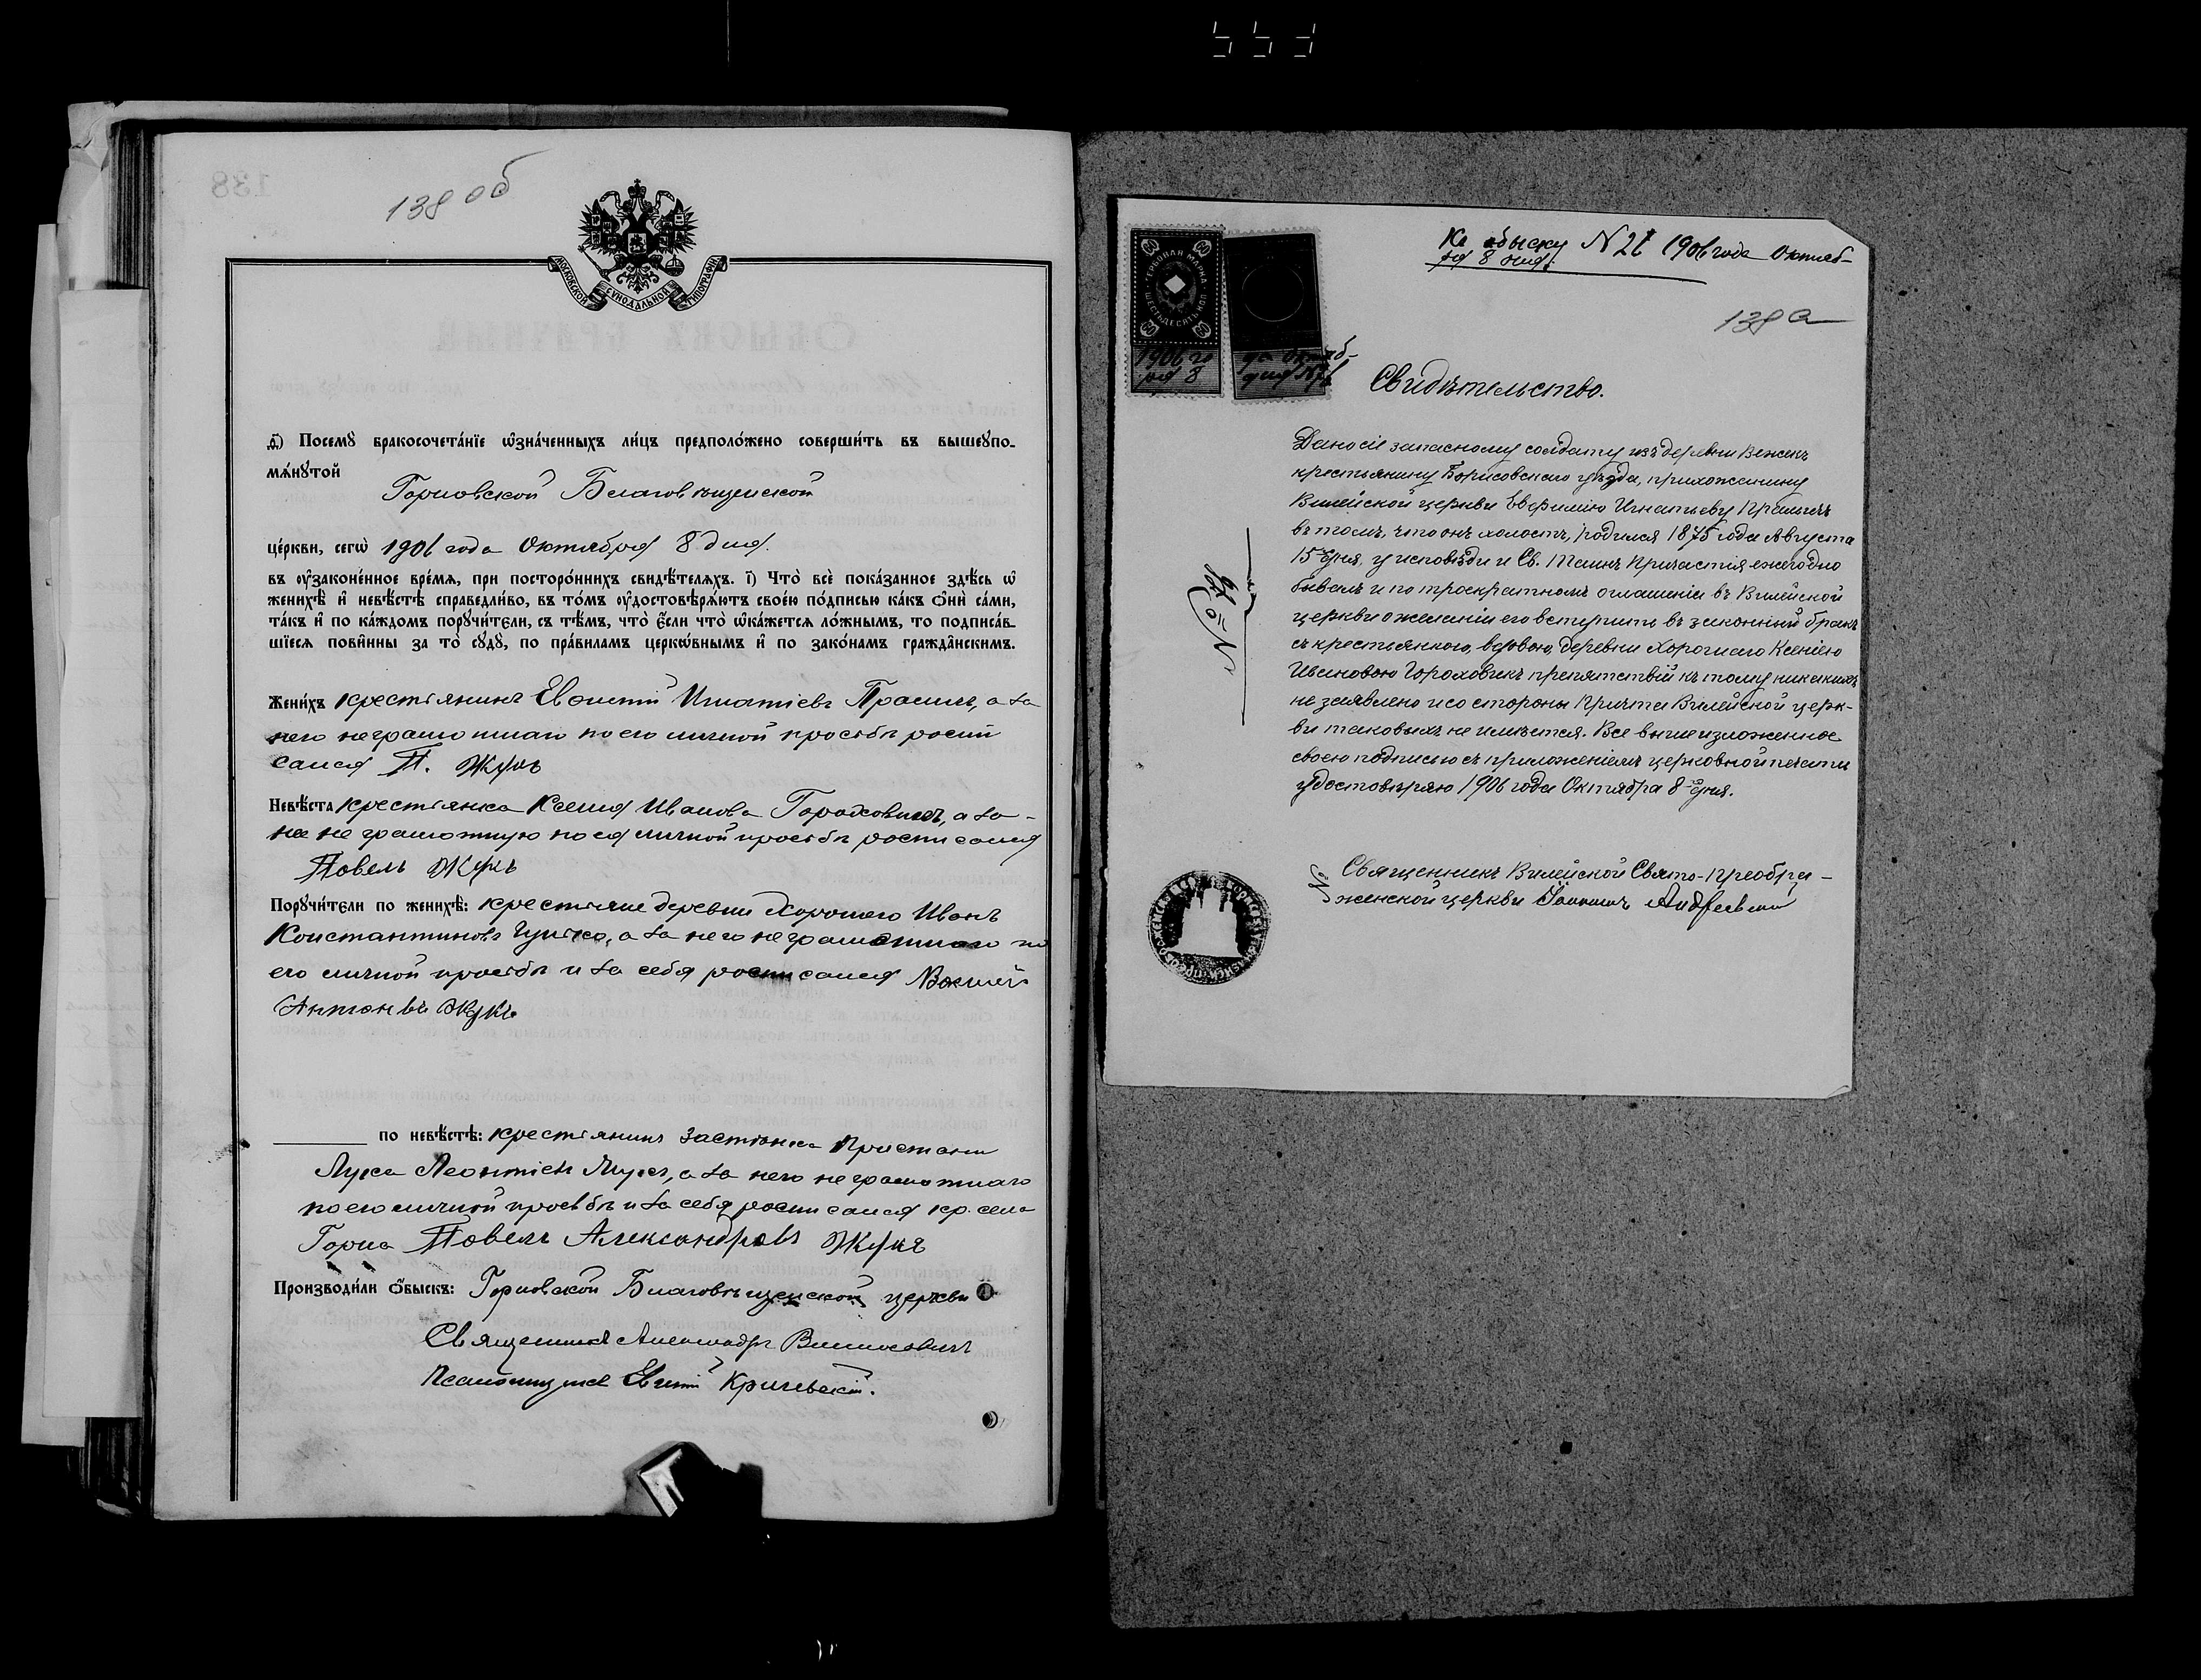 138 об
МОСКОВСКОЙ СѴНОДАЛЬНОЙ ТИПОГРАФІИ
Посемꙋ бракосочета́нїе ѡ҆зна́ченныхъ ли́цъ предполо́жено соверши́ть въ вышеꙋпо-
мѧ́нꙋтой
Горновской Благовѣщенской
це́ркви, сегѡ̀ 1906 года Октября 8 дня.
въ ᲂу҆зако́ненное вре́мѧ, при посторо́ннихъ свидѣ́телѧхъ. і҃) Что̀ всѐ пока́занное здѣ́сь ѡ҆
женихѣ̀ и҆ невѣ́стѣ справедли́во, въ то́мъ ᲂу҆достовѣрѧ́ютъ свое́ю по́дписью ка́къ ѻ҆нѝ са́ми,
та́къ и҆ по ка́ждомъ порꙋчи́тели, съ тѣ́мъ, что̀ є҆́сли что̀ ѡ҆ка́жетсѧ ло́жнымъ, то подписа́в-
шїесѧ пови́нны за то̀ сꙋдꙋ̀, по пра́виламъ церко́внымъ и҆ по зако́намъ гражда́нскимъ.
Жени́хъ крестьянинъ Игнатіевъ а за
него неграмотнаго по его личной просьбѣ роспи
сался П. Жукъ
Невѣ́ста крестьянка Ксенія Иванова Гороховикъ, а за-
нее не грамотную по ея личной просьбѣ росписался
Павелъ Жукъ
Порꙋчи́тели по женихѣ̀: крестьяне деревни Хорошаго Иванъ
Константиновъ а за него неграмотнаго по
его личной просьбѣ и за себя росписался
Антоновъ Жукъ
по невѣ́стѣ: крестьянинъ застѣнка Пристани
Лука Леонтіевъ а за него неграмотнаго
по его личной просьбѣ и за себя росписался кр. села
Горна Павелъ Александровъ Жукъ
Производи́ли ѻ҆́быскъ: Горновской Благовѣщенской церкви
Священникъ Александръ
Псаломщикъ Кричевскій.
Къ обыску N 21 1906 года Октяб-
ря 8 дня.
138 а
ГЕРБОВАЯ МАРКА
ШЕСТЬДЕСЯТЪ КОП.
60 60 60 60
1906 го да Октяб-
ря 8 дня
Свидѣтельство.
Дано сіе запасному солдату изъ деревни
крестьянину Борисовскаго уѣзда, прихожанину
Вилейской церкви Евфимію Игнатьеву
въ томъ, что онъ холостъ, родился 1875 года Августа
15 дня, у исповѣди и Св. Таинъ Причастія ежегодно
бывалъ и по троекратномъ оглашеніи въ Вилейской
церкви о желаніи его вступить въ законный бракъ
съ крестьянкою, вдовою, деревни Хорошаго Ксеніею
Ивановою Гороховикъ препятствій къ тому никакихъ
не заявлено и со стороны Причта Вилейской церк-
ви таковыхъ не имѣется. Все вышеизложенное
своею подписью съ приложеніемъ церковной печати
удостовѣряю 1906 года Октября 8 дня.
Священникъ Вилейской Свято-Преобра-
женской церкви